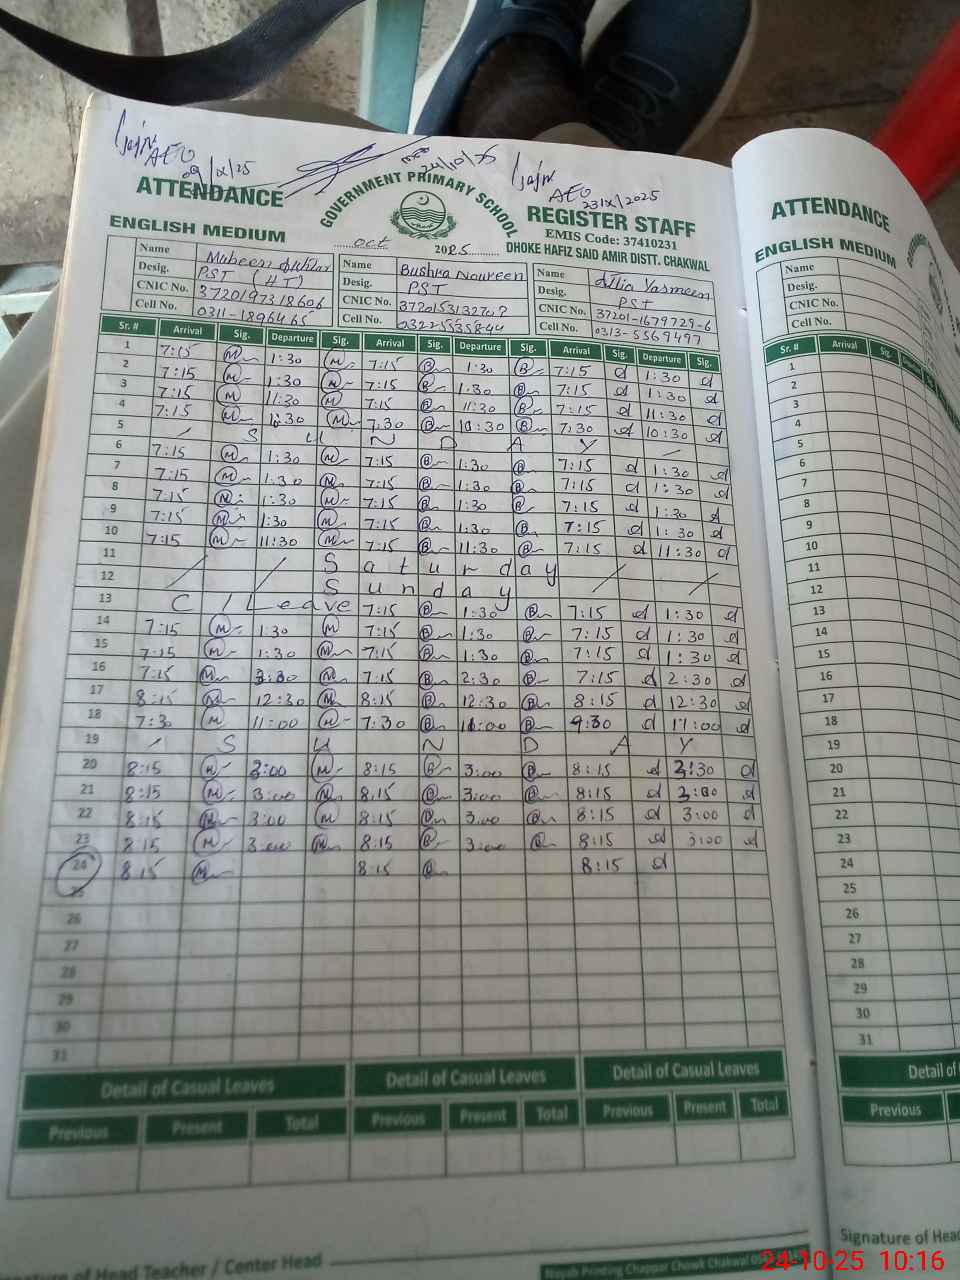 AEO
09/IX/25
24/10/25
AEO
23/X/2025
ATTENDANCE
GOVERNMENT PRIMARY SCHOOL
REGISTER STAFF
EMIS Code: 37410231
ENGLISH MEDIUM
oct 2025
DHOKE HAFIZ SAID AMIR DISTT. CHAKWAL
Name Maheen Name Bushra Noureen Name Atlia Yasmeen
Desig. PST (HT) Desig. PST Desig. PST
CNIC No. 3720197318606 CNIC No. CNIC No. 37201-1679729-6
Cell No. 0311-1896465 Cell No. 03225535844 Cell No. 0313-5569497
Sr. # Arrival Sig. Departure Sig. Arrival Sig. Departure Sig. Arrival Sig. Departure Sig.
1 7:15 M 1:30 M 7:15 B 1:30 B 7:15 d 1:30 d
2 7:15 M 1:30 M 7:15 B 1:30 B 7:15 d 1:30 d
3 7:15 M 11:30 M 7:15 B 11:30 B 7:15 d 11:30 d
4 7:15 M 10:30 M 7:30 B 10:30 B 7:30 d 10:30 d
5 S U N D A Y
6 7:15 M 1:30 M 7:15 B 1:30 B 7:15 d 1:30 d
7 7:15 M 1:30 M 7:15 B 1:30 B 7:15 d 1:30 d
8 7:15 M 1:30 M 7:15 B 1:30 B 7:15 d 1:30 d
9 7:15 M 1:30 M 7:15 B 1:30 B 7:15 d 1:30 d
10 7:15 M 11:30 M 7:15 B 11:30 B 7:15 d 11:30 d
11 Saturday
12 Sunday
13 C/Leave 7:15 B 1:30 B 7:15 d 1:30 d
14 7:15 M 1:30 M 7:15 B 1:30 B 7:15 d 1:30 d
15 7:15 M 1:30 M 7:15 B 1:30 B 7:15 d 1:30 d
16 7:15 M M 7:15 B 2:30 B 7:15 d 2:30 d
17 8:15 M 12:30 M 8:15 B 12:30 B 8:15 d 12:30 d
18 7:30 M 11:00 M 7:30 B 11:00 B d 11:00 d
19 S U N D A Y
20 8:15 M 3:00 M 8:15 B 3:00 B 8:15 d d
21 8:15 M 3:00 M 8:15 B 3:00 B 8:15 d 3:00 d
22 8:15 M 3:00 M 8:15 B 3:00 B 8:15 d 3:00 d
23 8:15 M 3:00 M 8:15 B 3:00 B 8:15 d 3:00 d
24 8:15 M 8:15 B 8:15 d
25
26
27
28
29
30
31
Detail of Casual Leaves Detail of Casual Leaves Detail of Casual Leaves
Previous Present Total Previous Present Total Previous Present Total
Signature of Head Teacher / Center Head
Printing Chappar Chowk Chakwal
ATTENDANCE
ENGLISH MEDIUM
Name
Desig.
CNIC No.
Cell No.
Sr. # Arrival Sig.
1
2
3
4
5
6
7
8
9
10
11
12
13
14
15
16
17
18
19
20
21
22
23
24
25
26
27
28
29
30
31
Detail of
Previous
Signature of Hea
24-10-25 10:16